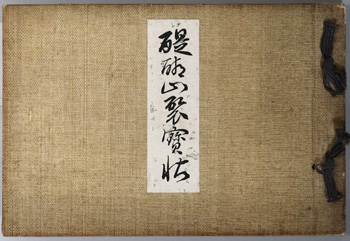 醍醐山聚寶帖